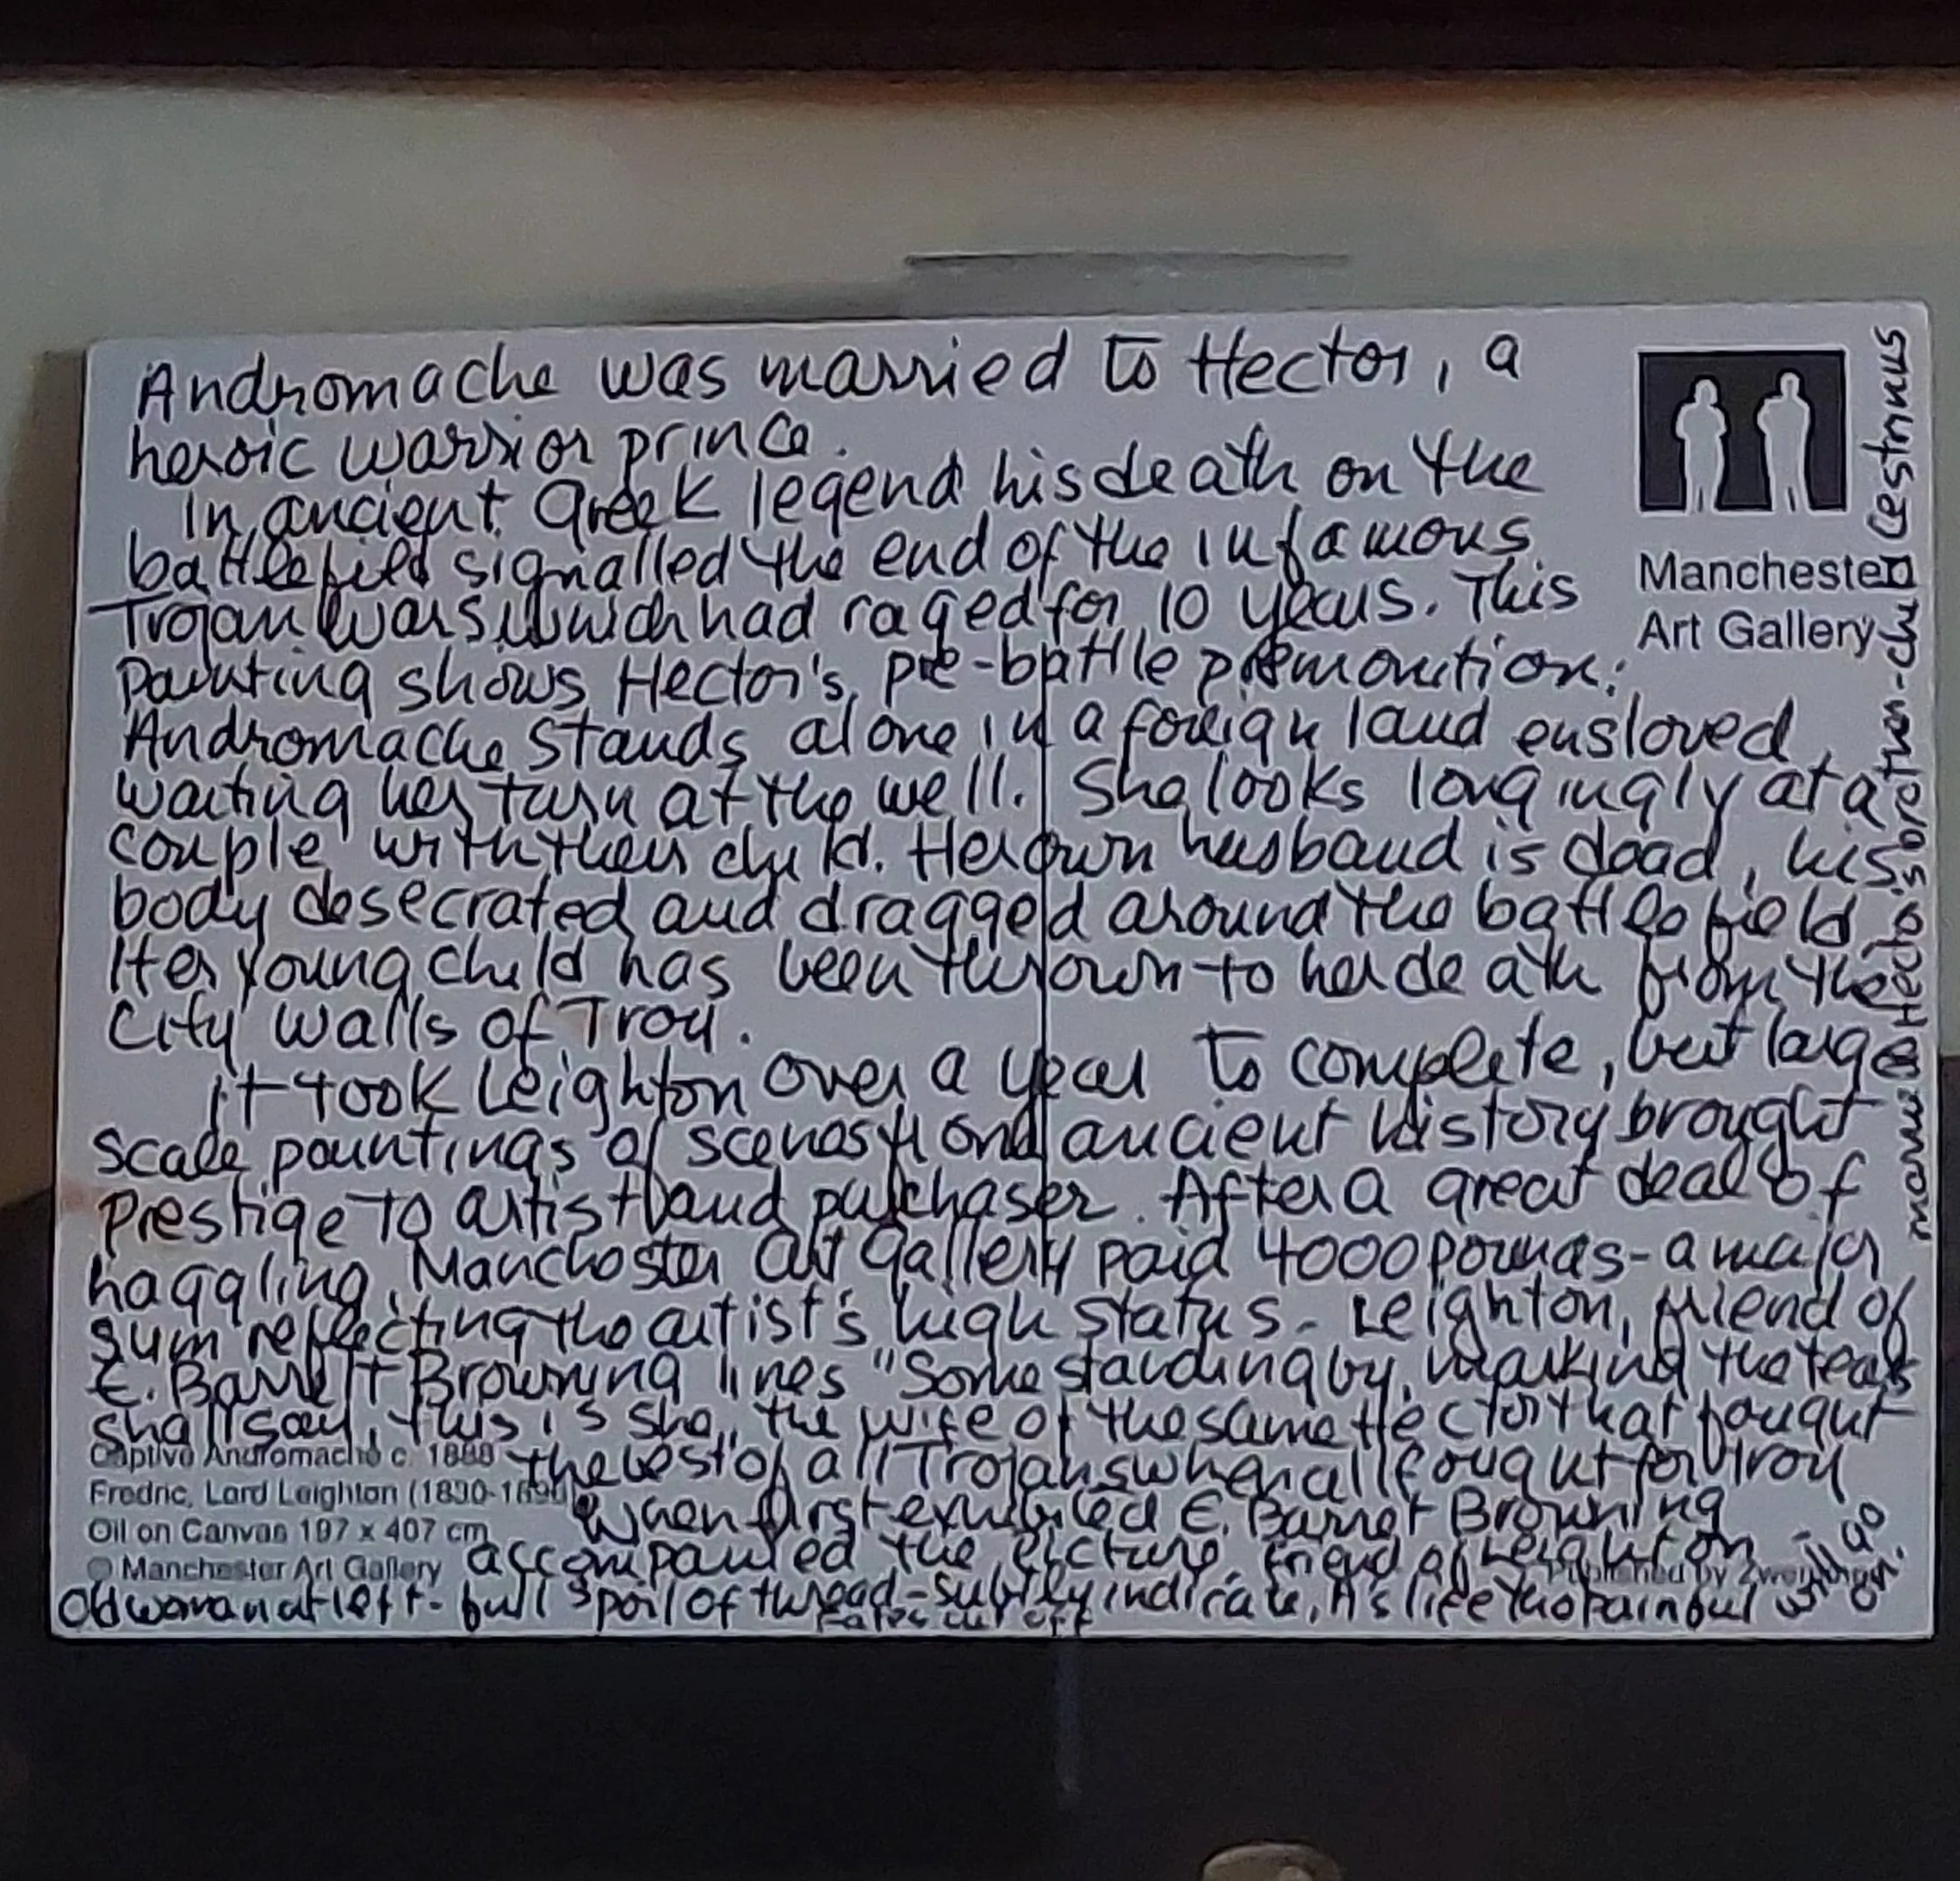 Andromache was married to Hector, a
heroic warrior prince.
In ancient Greek legend his death on the
battlefield signalled the end of the infamous
Trojan Wars which had raged for 10 years. This
painting shows Hector's pre-battle premonition:
Andromache stands alone in a foreign land ensloved,
waiting her turn at the well. She looks longingly at a
couple with their child. Her own husband is dead, his
body desecrated and dragged around the battlefield
Her young child has been thrown to her death from the
City walls of Troy.
It took Leighton over a year to complete, but large
scale paintings of scenes from ancient history brought
prestige to artist and purchaser. After a great deal of
haggling, Manchester Art Gallery paid 4000 pounds - a major
sum reflecting the artist's high status. Leighton, friend of
E. Barrett Browning lines "Some standing by, marking the tears
shall say, this is she, the wife of the same Hector that fought
the best of all Trojans when all fought for Troy
When first exhibited E. Barret Browning
accompanied the picture, friend of Leighton
Old woman at left - full spoil of thread - subtly indicate, A's life tho painful will go on.
Fates cut off
Manchester
Art Gallery
Captive Andromache c. 1888
Fredric, Lord Leighton (1830-1896)
Oil on Canvas 197 x 407 cm
© Manchester Art Gallery
Published by
Hector's